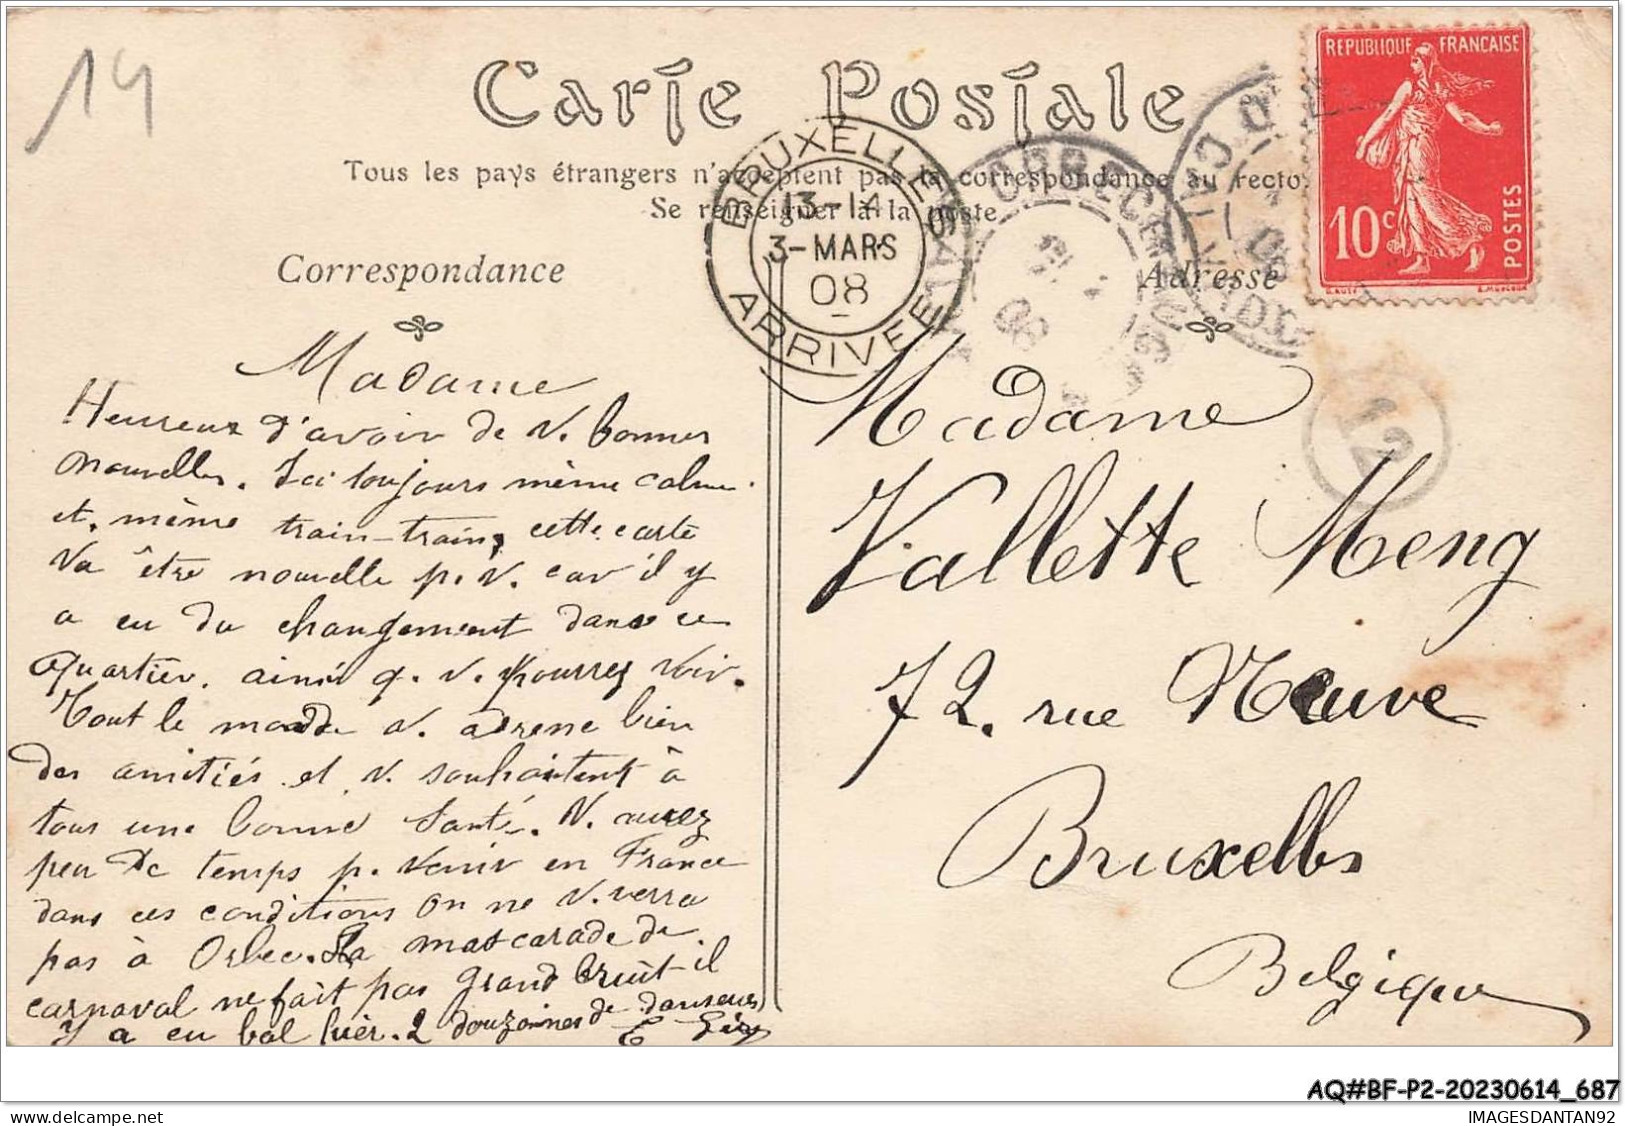 14
Carte Postale
Tous les pays étrangers n'acceptent pas la correspondance au recto.
Se renseigner à la poste
Correspondance
Adresse
REPUBLIQUE FRANÇAISE
10c
POSTES
BRUXELLES
13-14
3-MARS
08
ARRIVEE
ORBEC
CALVADOS
12
Madame
Heureux d'avoir de v. bonnes
nouvelles. Ici toujours même calme
et même train-train, cette carte
va être nouvelle p. v. car il y
a eu du changement dans ce
quartier. ainsi q. v. pourrez voir.
Tout le monde v. adresse bien
des amitiés et v. souhaitent à
tous une bonne santé. V. aurez
peu de temps p. venir en France
dans ces conditions on ne v. verra
pas à Orbec. La mascarade de
carnaval ne fait pas grand bruit il
y a eu bal hier. 2 douzaines de danseurs
Madame
Vallette Meng
72. rue Neuve
Bruxelles
Belgique
AQ#BF-P2-20230614_687
www.delcampe.net
IMAGESDANTAN92